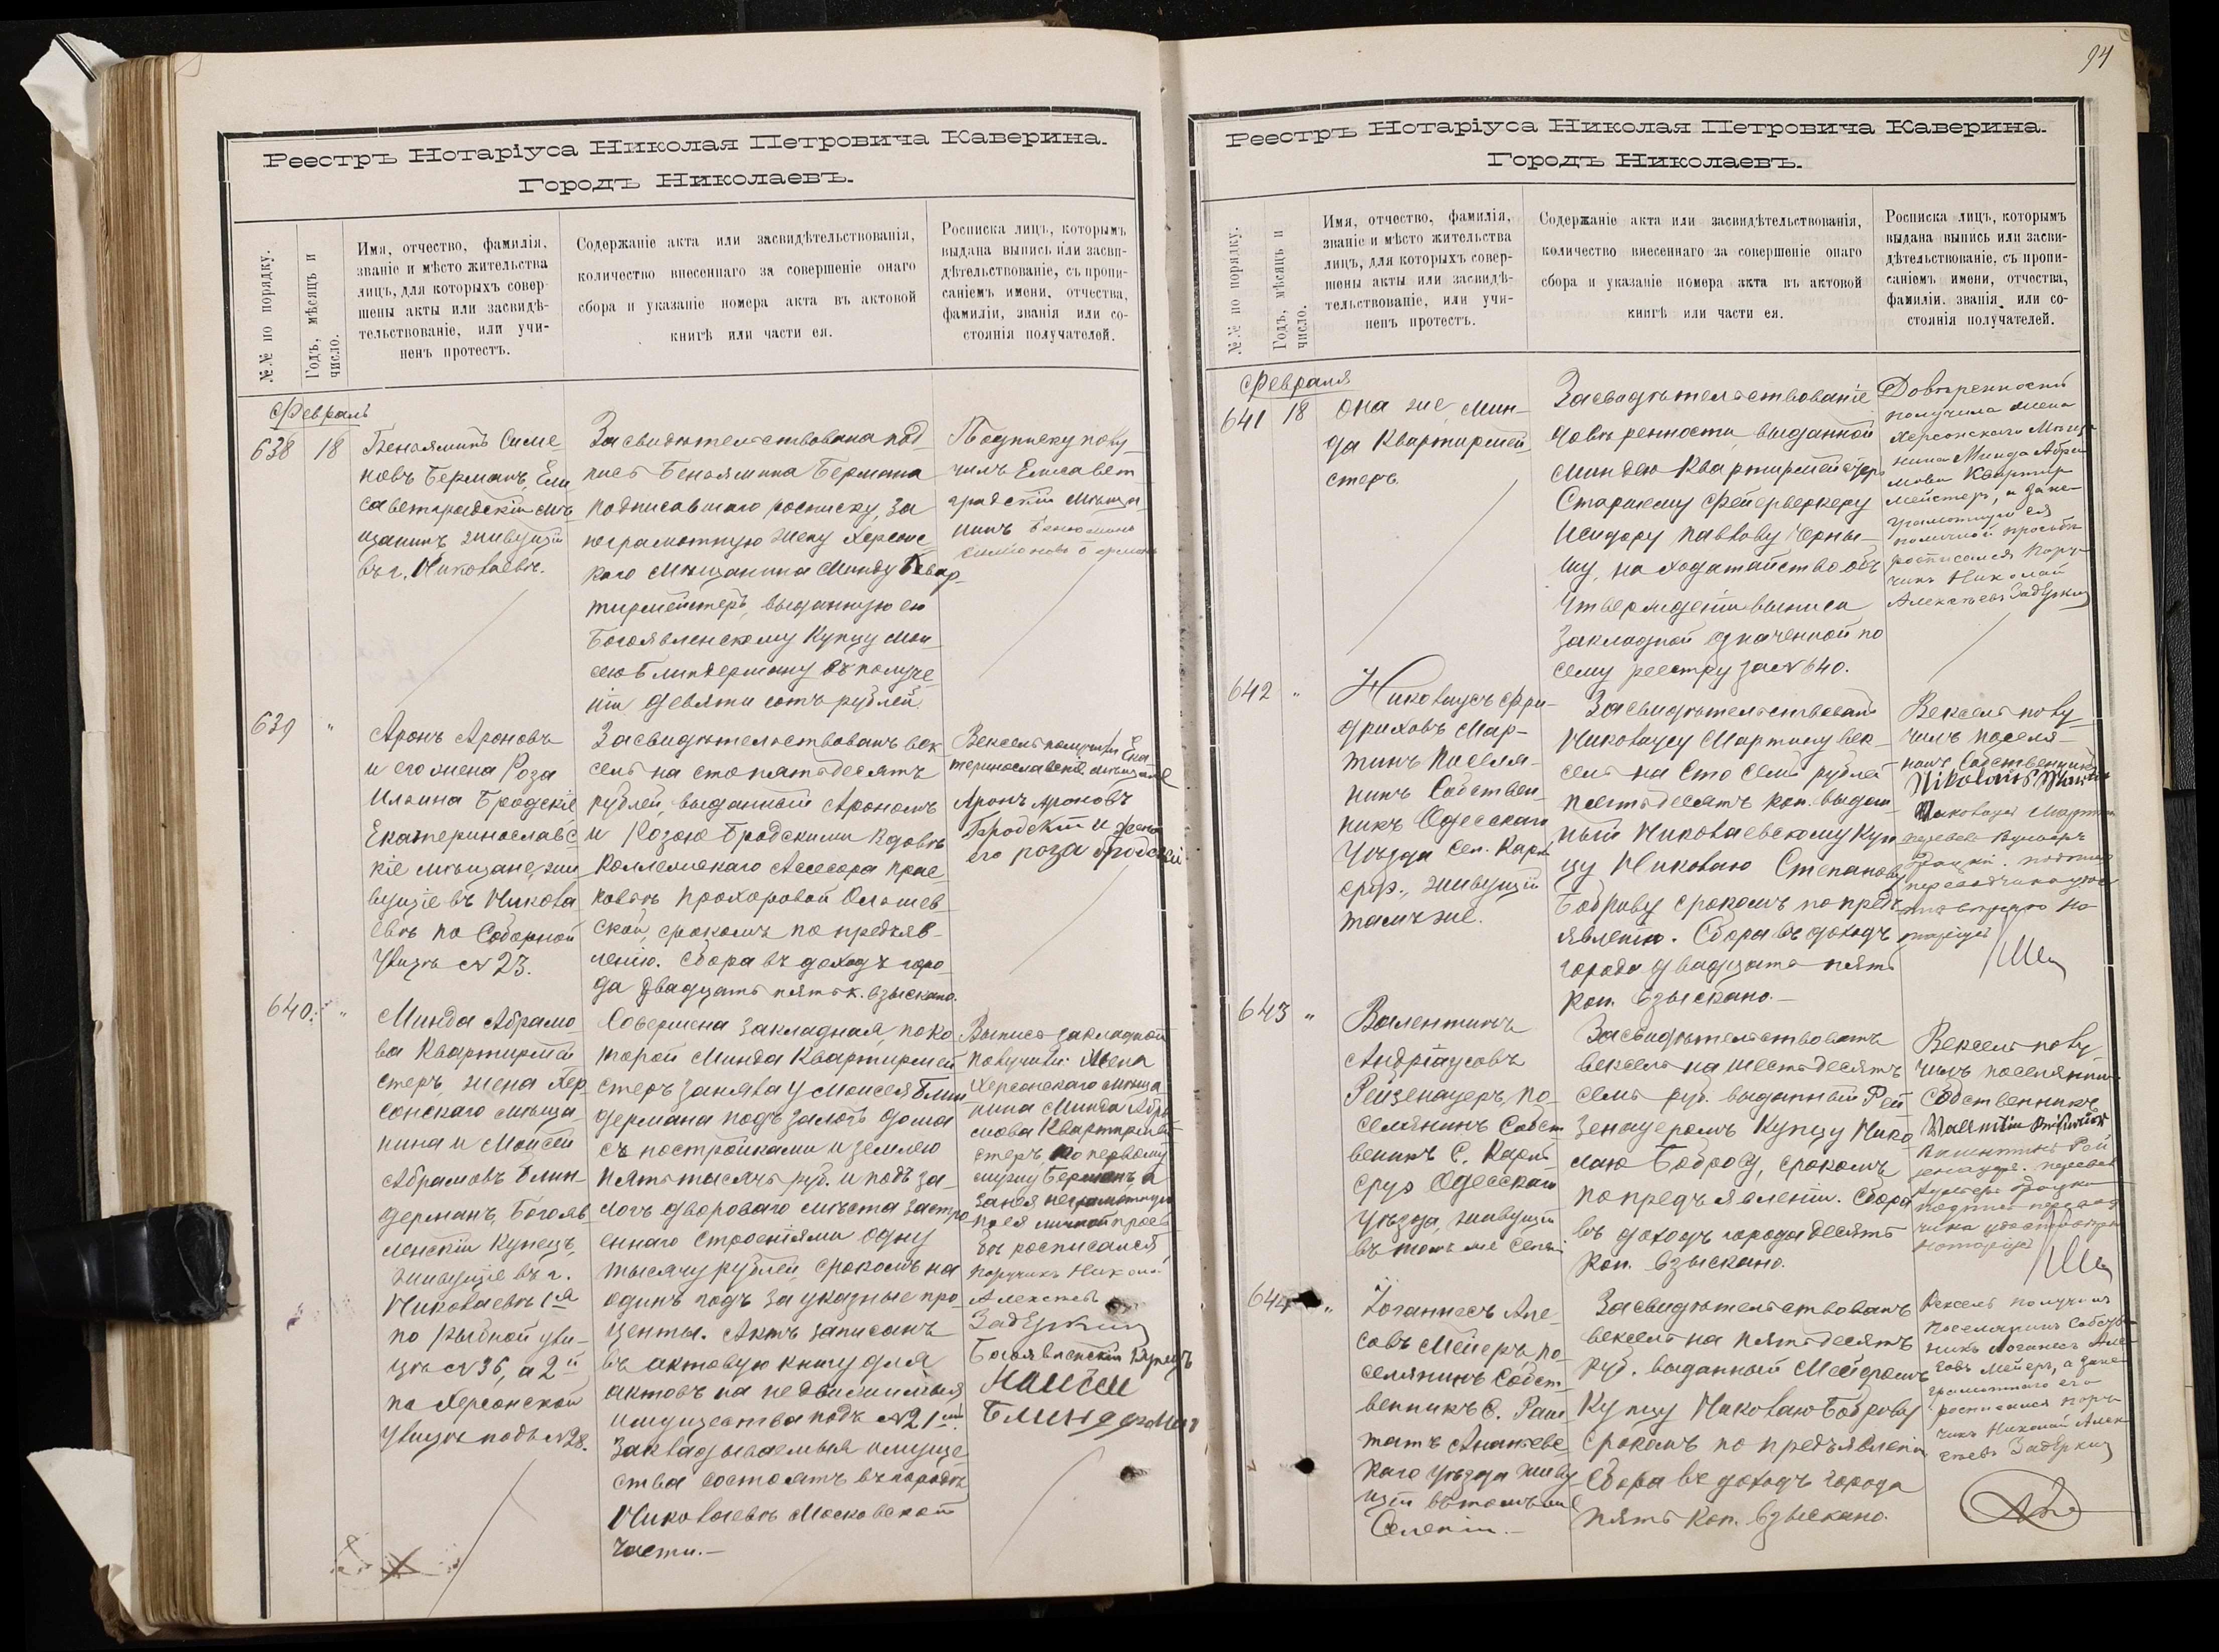 Реестръ Нотаріуса Николая Петровича Каверина.
Городъ Николаевъ.
№№ по порядку.
Годъ, мѣсяцъ и
число.
Имя, отчество, фамилія,
званіе и мѣсто жительства
лицъ, для которыхъ совер-
шены акты или засвидѣ-
тельствованіе, или учи-
ненъ протестъ.
Содержаніе акта или засвидѣтельствованія,
количество внесеннаго за совершеніе онаго
сбора и указаніе номера акта въ актовой
книгѣ или части ея.
Росписка лицъ, которымъ
выдана выпись или засви-
дѣтельствованіе, съ пропи-
саніемъ имени, отчества,
фамиліи, званія или со-
стоянія получателей.
Февраль
638
18
Беньяминъ Симо
новъ Берманъ, Ели
саветградскій мѣ
щанинъ живущій
въ г. Николаевѣ.
Засвидѣтельствована под
пись Беньямина Бермана
подписавшаго росписку, за
неграмотную жену Херсонс
каго мѣщанина Минду Квар
тирмейстеръ, выданную ею
Богоявленскому Купцу Мои
сею Блиндерману въ получе
ніи девяти сотъ рублей
Подписку полу
чилъ Елисавет
градскій мѣща
нинъ
639
"
Аронъ Ароновъ
и его жена Роза
Ильина Бродскіе
Екатеринославс
кіе мѣщане, жи
вущіе въ Никола
евѣ по Соборной
Улицѣ № 23.
Засвидѣтельствованъ век
сель на сто пятьдесятъ
рублей, выданный Арономъ
и Розою Бродскими вдовѣ
Коллежскаго Асессора Прас
ковьѣ Прохоровой Ольшев
ской, срокомъ по предъяв
ленію. Сбора въ доходъ горо
да двадцать пять к. взыскано.
Вексель получили Ека
теринославскіе мѣщане
Аронъ Ароновъ
Бродскій и жена
его роза бродскій
640.
"
Минда Абрамо
ва Квартирмей
стеръ, жена Хер
сонскаго мѣща
нина и Моисей
Абрамовъ Блин
дерманъ, Богояв
ленскій Купецъ,
живущіе въ г.
Николаевѣ 1я
по Рыбной ули
цѣ № 36, а 2й
по Херсонской
улицѣ подъ №28.
Совершена закладная, по ко
торой Минда Квартирмей
стеръ заняла у Моисея Блин
дермана подъ залогъ дома
съ постройками и землею
пять тысячъ руб. и подъ за
логъ двороваго мѣста застро
еннаго строеніями одну
тысячу рублей, срокомъ на
одинъ годъ за указные про
центы. Актъ записанъ
въ актовую книгу для
актовъ на недвижимыя
имущества подъ №21мъ
Закладываемыя имуще
ства состоятъ въ городѣ
Николаевѣ Московской
части.—
Выпись закладной
получили: Жена
Херсонскаго мѣща
нина Минда Абра
мова Квартирмей
стеръ, по первому
мужу Берманъ а
за нея неграмотную
по ея личной прось
бѣ росписался
поручикъ Николай
Алексѣевъ
Богоявленскій Купецъ
Моисей
Блиндерманъ
94
Реестръ Нотаріуса Николая Петровича Каверина.
Городъ Николаевъ.
№№ по порядку.
Годъ, мѣсяцъ и
число.
Имя, отчество, фамилія,
званіе и мѣсто жительства
лицъ, для которыхъ совер-
шены акты или засвидѣ-
тельствованіе, или учи-
ненъ протестъ.
Содержаніе акта или засвидѣтельствованія,
количество внесеннаго за совершеніе онаго
сбора и указаніе номера акта въ актовой
книгѣ или части ея.
Росписка лицъ, которымъ
выдана выпись или засви-
дѣтельствованіе, съ пропи-
саніемъ имени, отчества,
фамиліи, званія или со-
стоянія получателей.
Февраля
641
18
Она же, Мин-
да Квартирмей
стеръ.
Засвидѣтельствованіе
довѣренности, выданной
Миндою Квартирмейстеръ
Старшему Фейерверкеру
Исидору Павлову Черны-
шу, на ходатайство объ
утвержденіи выписи
закладной означенной по
сему реестру за №640.
Довѣренность
получила жена
Херсонскаго Мѣща
нина Минда Абра
мова Квартир
мейстеръ, а за не
грамотную ея
по личной просьбѣ
росписался Пору
чикъ Николай
Алексѣевъ
642
"
Николаусъ Фри-
дриховъ Мар-
тинъ Поселя-
нинъ Собствен-
никъ Одесскаго
Уѣзда Сел. Карлс
руэ, живущій
тамъ же.
Засвидѣтельствованъ
Николаусу Мартину век-
сель на Сто семь рублей
шестьдесятъ коп. выдан
ный Николаевскому Куп
цу Николаю Степанову
Боброву срокомъ по предъ
явленію. Сбора въ доходъ
города двадцать пять
коп. взыскано.—
Вексель полу-
чилъ поселя-
нинъ Собственникъ
Nikolaus Martin
Николаусъ Мартинъ
643
"
Валентинъ
Андріаусовъ
Рейзенауеръ, по-
селянинъ Собст
венникъ С. Карлс
руэ Одесскаго
Уѣзда, живущій
въ томъ же Селѣ
Засвидѣтельствованъ
вексель на шестьдесятъ
семь руб. выданный Рей
зенауеромъ Купцу Нико
лаю Боброву, срокомъ
по предъявленіи. Сбора
въ доходъ города десять
коп. взыскано.
Вексель полу-
чилъ поселянинъ
Собственникъ
644
"
Іоганнесъ Але
совъ Мейеръ, по-
селянинъ Собст-
венникъ С. Раш
татъ Ананьевс
каго уѣзда живу
щій въ томъ же
Селеніи.—
Засвидѣтельствованъ
вексель на пятьдесятъ
руб. выданный Мейеромъ
Купцу Николаю Боброву
срокомъ по предъявленіи
Сбора въ доходъ города
пять коп. взыскано.
Вексель получилъ
Поселянинъ Собств
никъ Іоганесъ Але
совъ Мейеръ, а за не
грамотнаго его
росписался пору
чикъ Николай Алек
сѣевъ